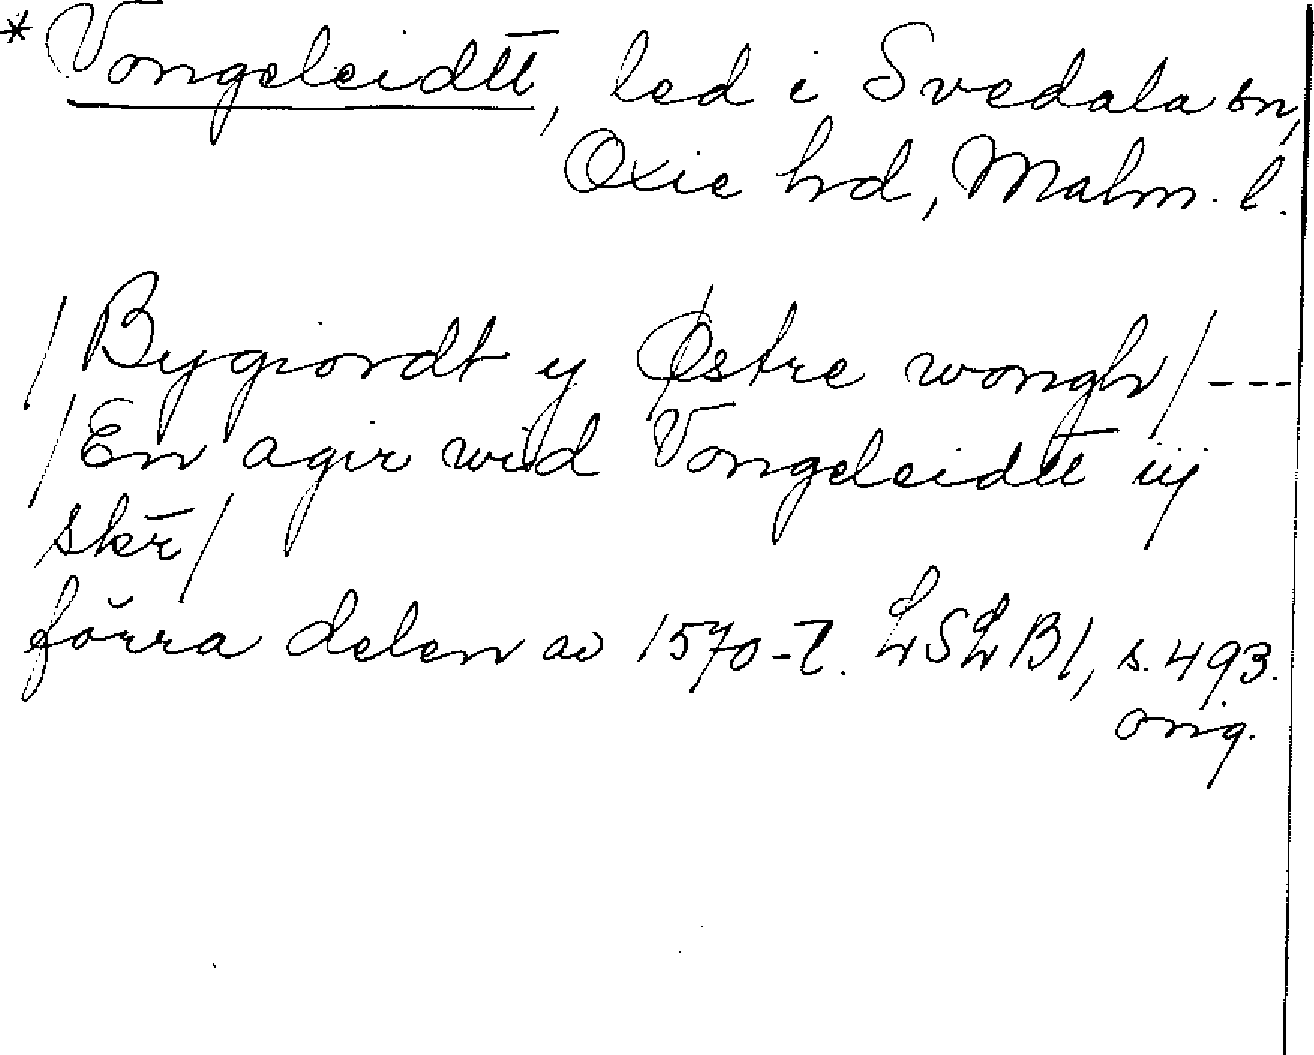 * Vongeleidtt, led i Svedala sn,
Oxie hd, Malm. l.
/Bygiordt y Østre wongh/---
/En agir wid Vongeleidtt iij
skr̄/
förra delen av 1570-t. LSLB1, s. 493.
orig.